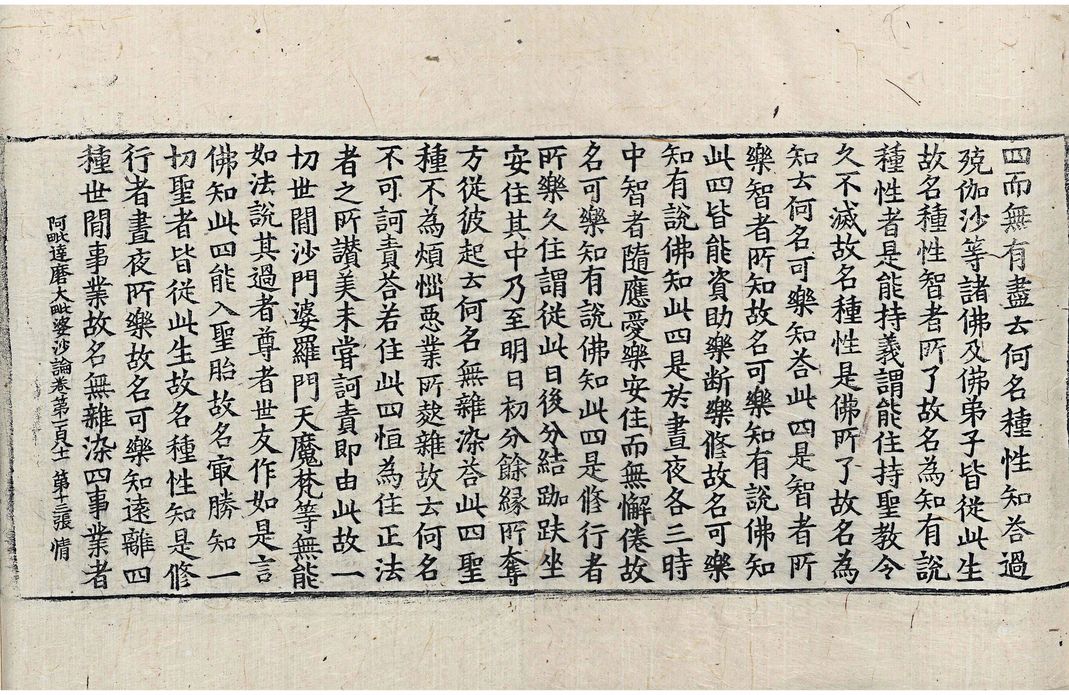 四而無有盡云何名種性知荅過
殑伽沙等諸佛及佛弟子皆從此生
故名種性智者所了故名為知有說
種性者是能持義謂能住持聖教令
久不滅故名種性是佛所了故名為
知云何名可樂知荅此四是智者所
樂智者所知故名可樂知有說佛知
此四皆能資助樂斷樂修故名可樂
知有說佛知此四是於晝夜各三時
中智者隨應愛樂安住而無懈倦故
名可樂知有說佛知此四是修行者
所樂久住謂從此日後分結跏趺坐
安住其中乃至明日初分餘縁所奪
方從彼起云何名無雜染荅此四聖
種不為煩惱惡業所雜故云何名
不可訶責荅若住此四恒為住正法
者之所讚美未甞訶責即由此故一
切世閒沙門婆羅門天魔梵等無能
如法說其過者尊者世友作如是言
佛知此四能入聖胎故名冣勝知一
切聖者皆從此生故名種性知是修
行者晝夜所樂故名可樂知遠離四
種世閒事業故名無雜染四事業者
阿毗達磨大毗婆沙論卷第一百八十一 第十三張 情